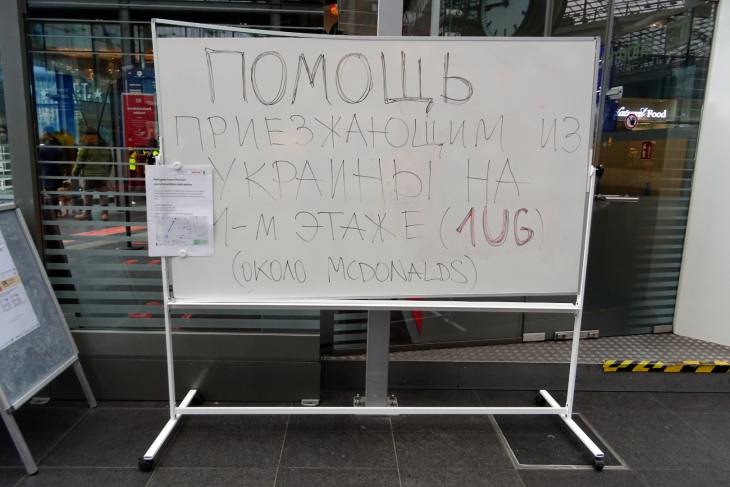 ПОМОЩЬ
ПРИЕЗЖАЮЩИМ ИЗ
УКРАИНЫ НА
1-М ЭТАЖЕ (1UG)
(ОКОЛО MCDONALDS)
Natural Food